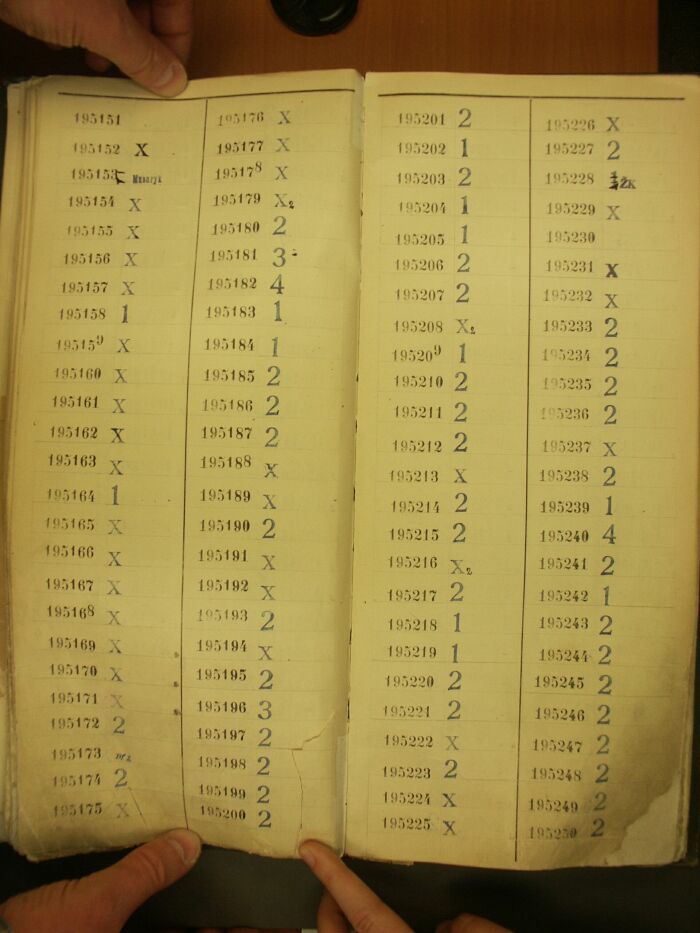 195151
195152 X
195153 Masaryk
195154 X
195155 X
195156 X
195157 X
195158 1
195159 X
195160 X
195161 X
195162 X
195163 X
195164 1
195165 X
195166 X
195167 X
195168 X
195169 X
195170 X
195171 X
195172 2
195173
195174 2
195175 X
195176 X
195177 X
195178 X
195179 X2
195180 2
195181 3
195182 4
195183 1
195184 1
195185 2
195186 2
195187 2
195188 X
195189 X
195190 2
195191 X
195192 X
195193 2
195194 X
195195 2
195196 3
195197 2
195198 2
195199 2
195200 2
195201 2
195202 1
195203 2
195204 1
195205 1
195206 2
195207 2
195208 X2
195209 1
195210 2
195211 2
195212 2
195213 X
195214 2
195215 2
195216 X2
195217 2
195218 1
195219 1
195220 2
195221 2
195222 X
195223 2
195224 X
195225 X
195226 X
195227 2
195228 ŽK
195229 X
195230
195231 X
195232 X
195233 2
195234 2
195235 2
195236 2
195237 X
195238 2
195239 1
195240 4
195241 2
195242 1
195243 2
195244 2
195245 2
195246 2
195247 2
195248 2
195249 2
195250 2